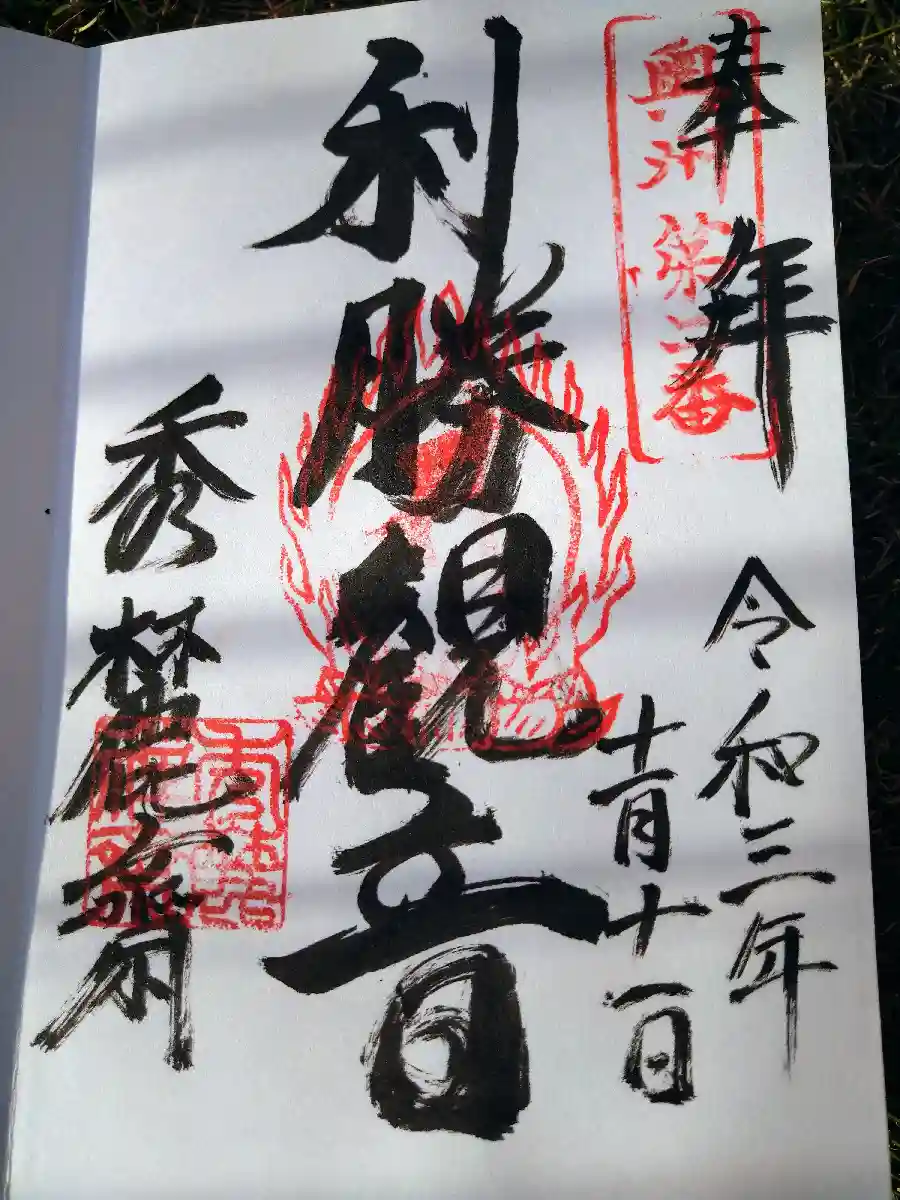 奉拝
奥州第二番
令和三年
十一月十一日
利勝観音
秀麓齋